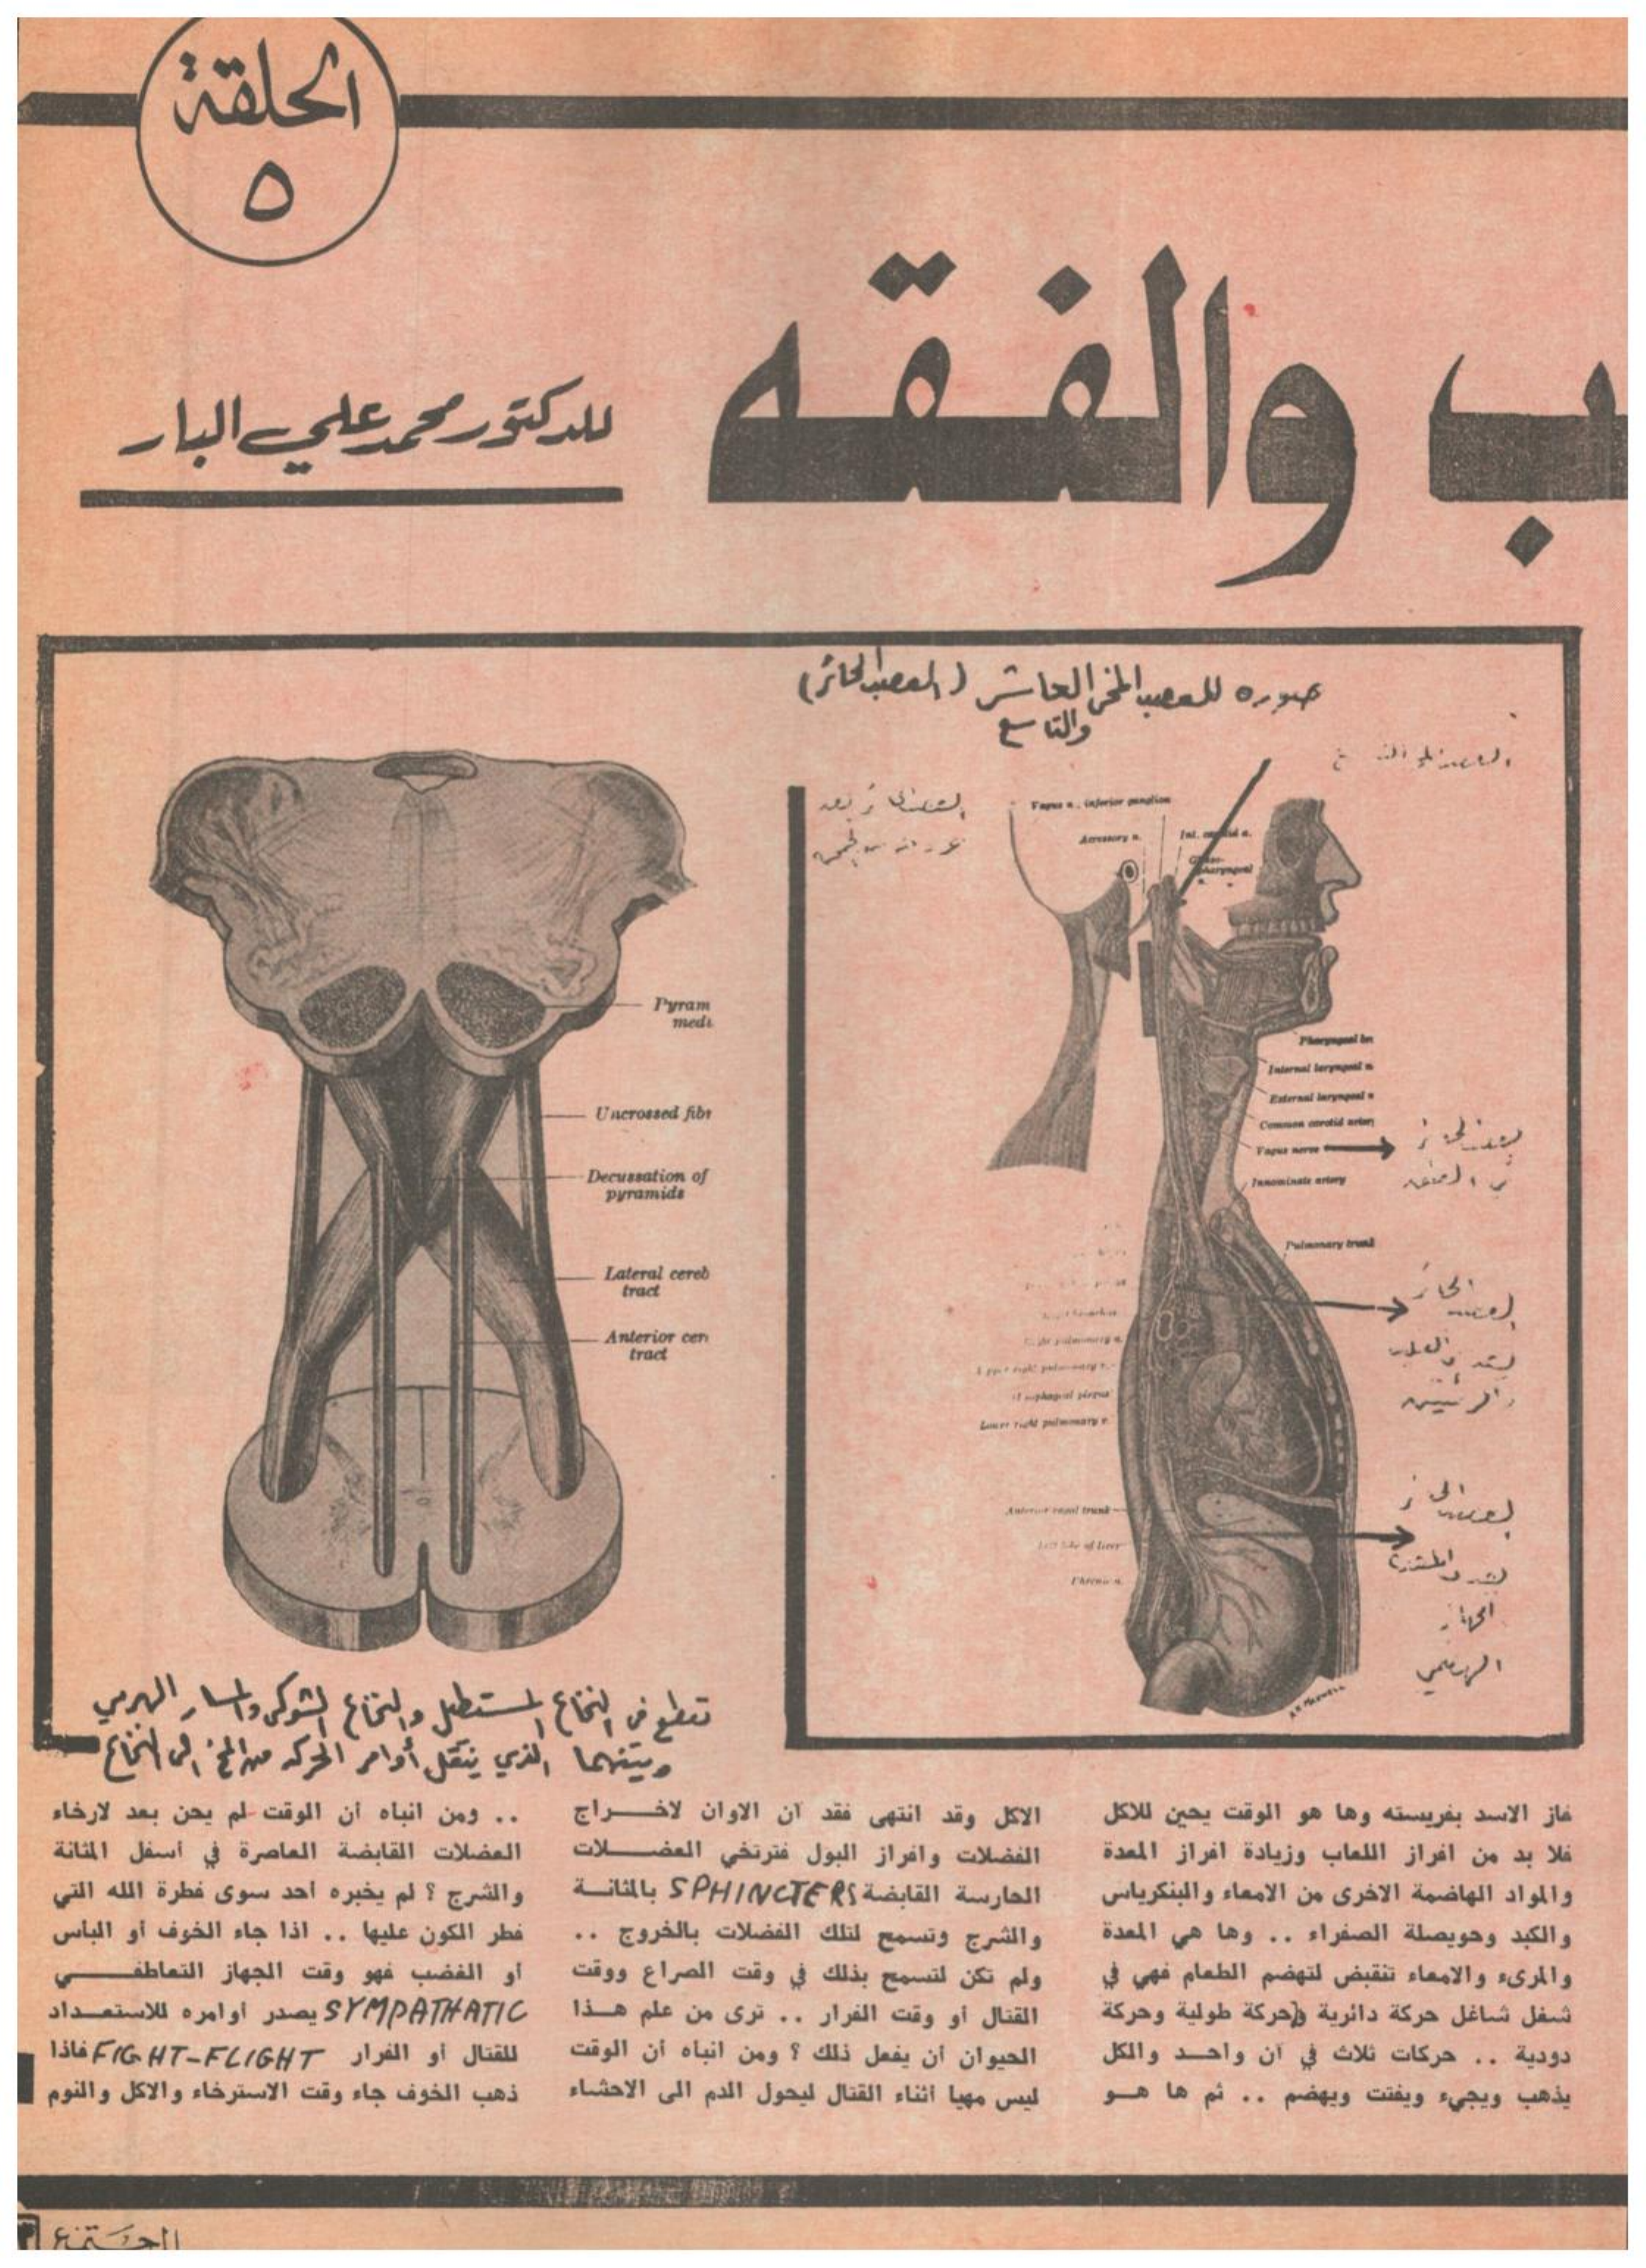 الحلقة
٥
ب والفقه
للدكتور محمد علي البار
صوره للعصب المخي العاشر (العصب الحائر)
والتاسع
Vagus n., inferior ganglion
Accessory n.
Int. carotid a.
pharyngeal
Pharyngeal br
Internal laryngeal n
External laryngeal n
Common carotid artery
Vagus nerve
Innominate artery
Pulmonary trunk
العصب الحائر
في العنق
العصب الحائر
والرئتين
right pulmonary v.
Lower right pulmonary v.
Anterior vagal trunk
Left lobe of liver
العصب الحائر
الجهاز
الهضمي
Pyram
medu
Uncrossed fibr
Decussation of
pyramids
Lateral cereb
tract
Anterior cer
tract
تقطع في النخاع المستطيل والنخاع الشوكي والمسار الهرمي
وبينهما الذي ينقل أوامر الحركة من المخ الى النخاع
فاز الاسد بفريسته وها هو الوقت يحين للاكل
فلا بد من افراز اللعاب وزيادة افراز المعدة
والمواد الهاضمة الاخرى من الامعاء والبنكرياس
والكبد وحويصلة الصفراء .. وها هي المعدة
والمرىء والامعاء تنقبض لتهضم الطعام فهي في
شغل شاغل حركة دائرية وحركة طولية وحركة
دودية .. حركات ثلاث في آن واحد والكل
يذهب ويجيء ويفتت ويهضم .. ثم ها هو
الاكل وقد انتهى فقد آن الاوان لاخراج
الفضلات وافراز البول فترتخي العضلات
الحارسة القابضة SPHINCTERS بالمثانة
والشرج وتسمح لتلك الفضلات بالخروج ..
ولم تكن لتسمح بذلك في وقت الصراع ووقت
القتال أو وقت الفرار .. ترى من علم هذا
الحيوان أن يفعل ذلك ؟ ومن انباه أن الوقت
ليس مهيا اثناء القتال ليحول الدم الى الاحشاء
.. ومن انباه أن الوقت لم يحن بعد لارخاء
العضلات القابضة العاصرة في أسفل المثانة
والشرج ؟ لم يخبره احد سوى فطرة الله التي
فطر الكون عليها .. اذا جاء الخوف أو الباس
أو الغضب فهو وقت الجهاز التعاطفي
SYMPATHATIC يصدر أوامره للاستعداد
للقتال أو الفرار FIGHT-FLIGHT فاذا
ذهب الخوف جاء وقت الاسترخاء والاكل والنوم
المجتمع